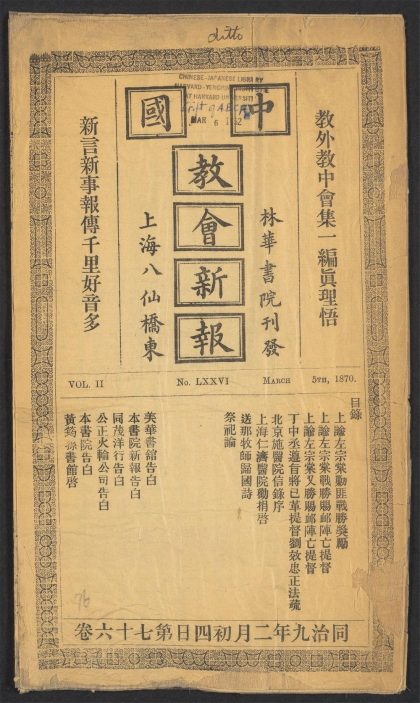 ditto
CHINESE-JAPANESE LIBRARY
HARVARD-YENCHING
AT HARVARD UNIVERSITY
MAR 6 1952
中國
教
會
新
報
教外教中會集一編眞理悟
林華書院刊發
上海八仙橋東
新言新事報傳千里好音多
VOL. II No. LXXVI MARCH 5TH, 1870.
目錄
上諭左宗棠勦匪戰勝獎勵
上諭左宗棠戰勝賜䘏陣亡提督
上諭左宗棠又勝賜䘏陣亡提督
丁中丞遵旨將已革提督劉效忠正法疏
北京施醫院信錄序
上海仁濟醫院勸捐啓
送那牧師歸國詩
祭祀論
美華書舘告白
本書院新報告白
同茂洋行告白
公正火輪公司告白
本書院告白
黃 書館啓
76
同治九年二月初四日第七十六卷